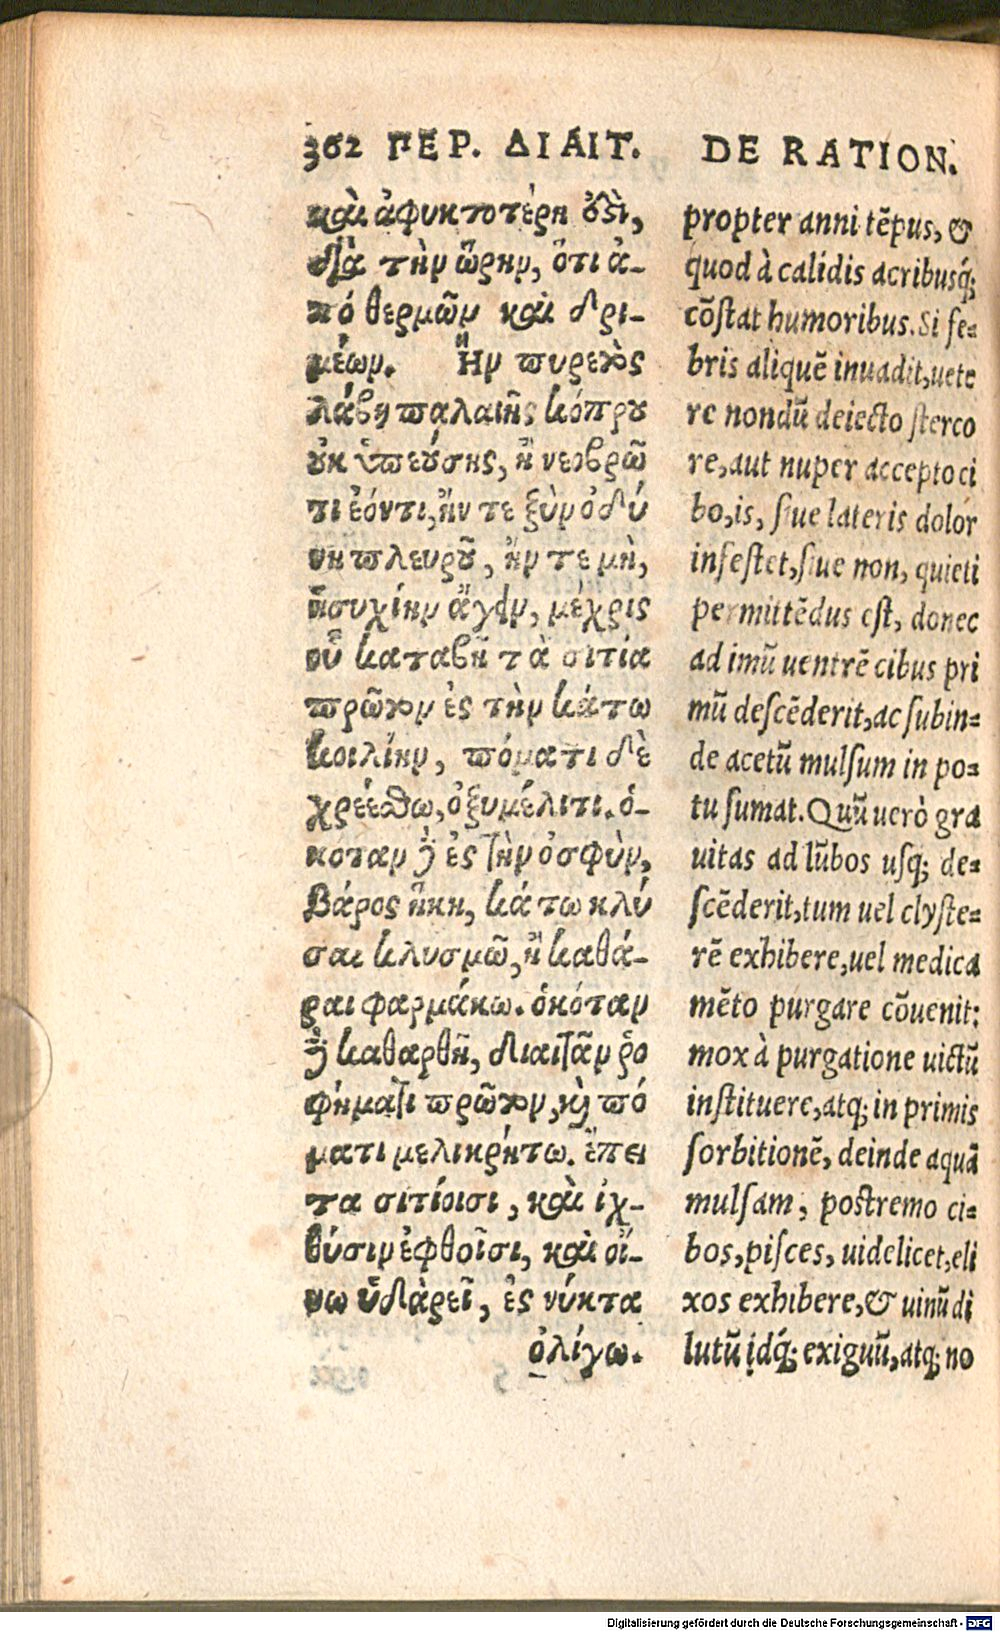 362 ΠΕΡ. ΔΙΑΙΤ.
καὶ ἀφυκτοτέρη ὅδε,
διὰ τὴν ὥρην, ὅτι ἀ-
πὸ θερμῶν καὶ δρι-
μέων. Ἢν πυρετὸς
λάβῃ παλαιῆς κόπρου
οὐκ ὑπεούσης, ἢ νεοβρῶ
τι ἐόντι, ἤν τε ξὺν ὀδύ
νῃ πλευροῦ, ἤν τε μὴ,
ἡσυχίην ἄγειν, μέχρις
οὗ καταβῇ τὰ σιτία
πρῶτον ἐς τὴν κάτω
κοιλίην, πόματι δὲ
χρεέσθω, ὀξυμέλιτι. ὁ-
κόταν δὲ ἐς τὴν ὀσφὺν,
βάρος ἥκῃ, κάτω κλύ
σαι κλυσμῷ, ἢ καθά-
ραι φαρμάκῳ. ὁκόταν
δὲ καθαρθῇ, διαιτᾶν ῥο
φήματι πρῶτον, καὶ πό
ματι μελικρήτῳ. ἔπει
τα σιτίοισι, καὶ ἰχ-
θύσιν ἑφθοῖσι, καὶ οἴ-
νῳ ὑδαρεῖ, ἐς νύκτα
ὀλίγῳ.
DE RATION.
propter anni tẽpus, &
quod à calidis acribusq́;
cõstat humoribus. Si fe-
bris aliquẽ inuadit, uete
re nondũ deiecto sterco
re, aut nuper accepto ci
bo, is, siue lateris dolor
infestet, siue non, quieti
permittẽdus est, donec
ad imũ uentrẽ cibus pri
mũ descẽderit, ac subin-
de acetũ mulsum in po-
tu sumat. Quũ uerò gra
uitas ad lũbos usq; de-
scẽderit, tum uel clyste-
rẽ exhibere, uel medica
mẽto purgare cõuenit:
mox à purgatione uictũ
instituere, atq; in primis
sorbitionẽ, deinde aquã
mulsam, postremo ci-
bos, pisces, uidelicet, eli
xos exhibere, & uinũ di
lutũ idq́; exiguũ, atq; no
Digitalisierung gefördert durch die Deutsche Forschungsgemeinschaft - DFG